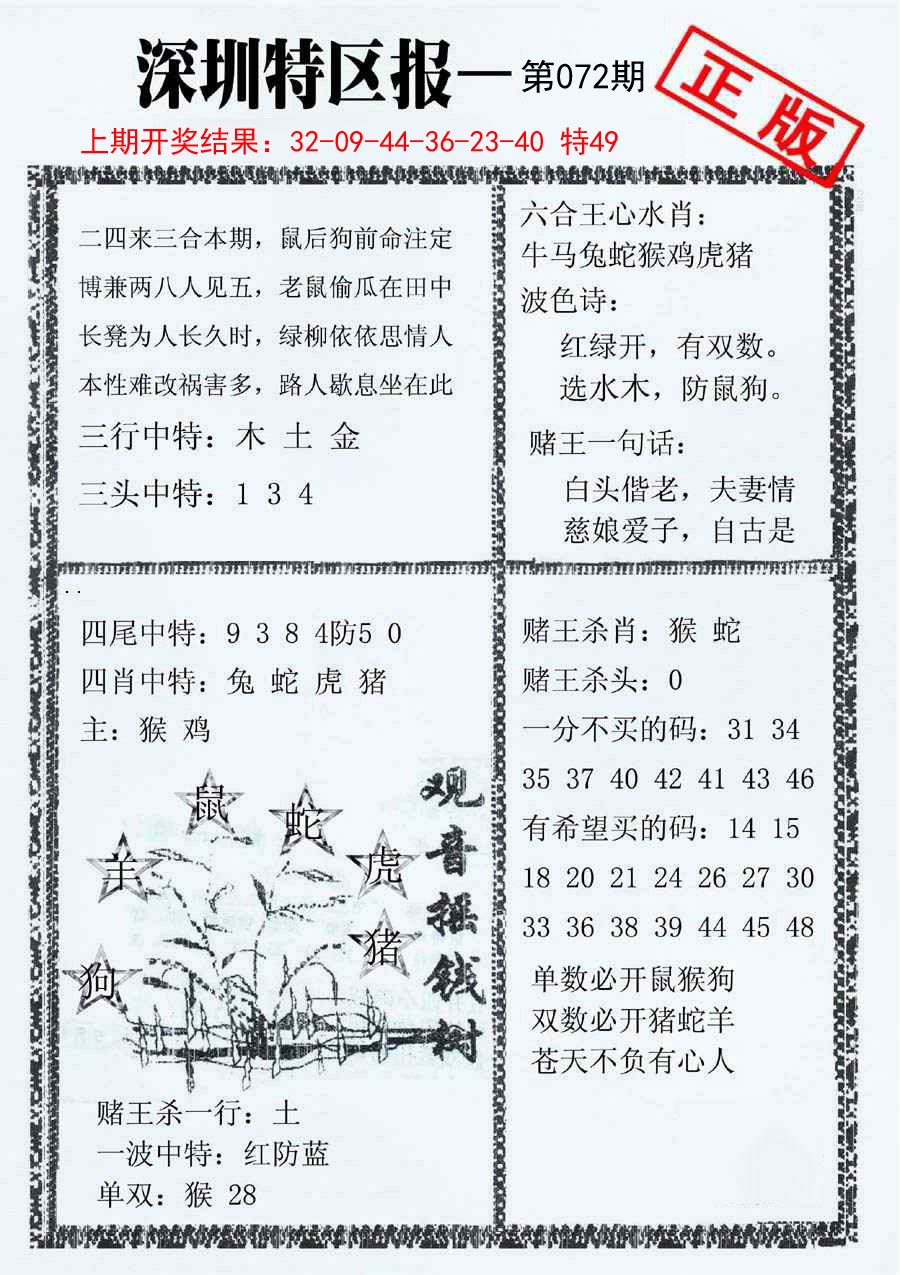 深圳特区报—第072期
正版
上期开奖结果：32-09-44-36-23-40 特49
二四来三合本期，鼠后狗前命注定
博兼两八人见五，老鼠偷瓜在田中
长凳为人长久时，绿柳依依思情人
本性难改祸害多，路人歇息坐在此
三行中特：木 土 金
三头中特：1 3 4
六合王心水肖：
牛马兔蛇猴鸡虎猪
波色诗：
红绿开，有双数。
选水木，防鼠狗。
赌王一句话：
白头偕老，夫妻情
慈娘爱子，自古是
四尾中特：9 3 8 4防5 0
四肖中特：兔 蛇 虎 猪
主：猴 鸡
鼠
蛇
羊
虎
猪
狗
观音摇钱树
赌王杀一行：土
一波中特：红防蓝
单双：猴 28
赌王杀肖：猴 蛇
赌王杀头：0
一分不买的码：31 34
35 37 40 42 41 43 46
有希望买的码：14 15
18 20 21 24 26 27 30
33 36 38 39 44 45 48
单数必开鼠猴狗
双数必开猪蛇羊
苍天不负有心人